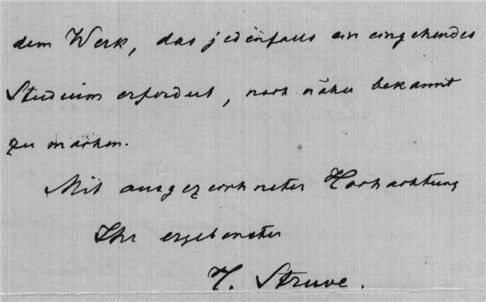 dem Werk, das jedenfalls ein eingehendes
Studium erfordert, noch näher bekannt
zu machen.
Mit ausgezeichneter Hochachtung
Ihr ergebenster
H. Struve.